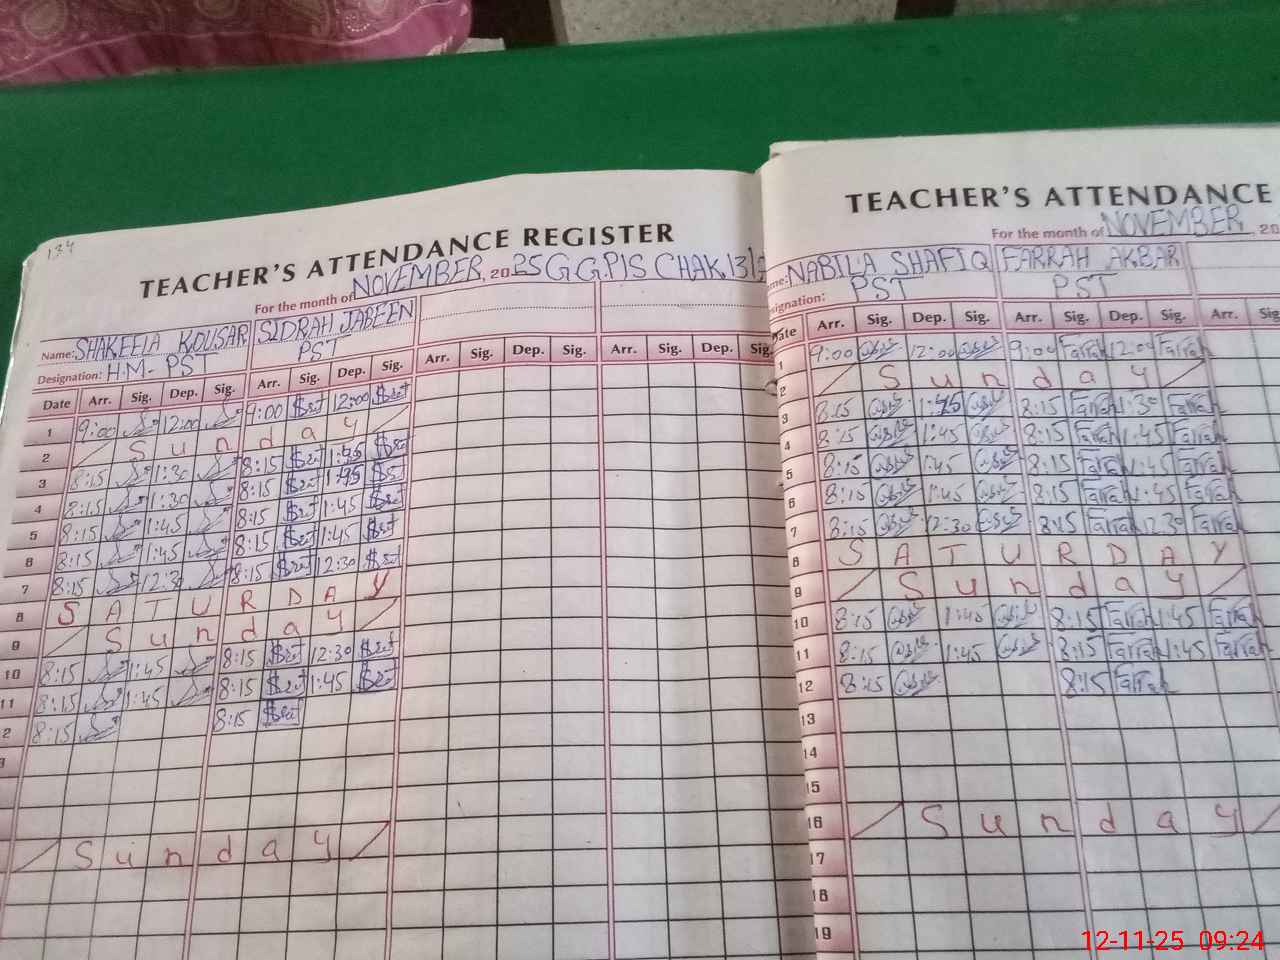 134
TEACHER'S ATTENDANCE REGISTER
For the month of NOVEMBER, 2025 G.G.P/S CHAK 131
Name: SHAKEELA KOUSAR SIDRAH JABEEN
Designation: H.M- PST PST
Date Arr. Sig. Dep. Sig. Arr. Sig. Dep. Sig. Arr. Sig. Dep. Sig. Arr. Sig. Dep. Sig.
1 9:00 12:00 9:00 12:00
2 Sunday
3 8:15 1:30 8:15 1:45
4 8:15 1:30 8:15 1:45
5 8:15 1:45 8:15 1:45
6 8:15 1:45 8:15 1:45
7 8:15 12:30 8:15 12:30
8 SATURDAY
9 Sunday
10 8:15 1:45 8:15 12:30
11 8:15 1:45 8:15 1:45
2 8:15 8:15
Sunday
TEACHER'S ATTENDANCE
For the month of NOVEMBER, 20
me: NABILA SHAFIQ FARRAH AKBAR
signation: PST PST
Date Arr. Sig. Dep. Sig. Arr. Sig. Dep. Sig. Arr. Sig
1 9:00 12:00 9:00 Farrah 12:00 Farrah
2 Sunday
3 8:15 1:45 8:15 Farrah 1:30 Farrah
4 8:15 1:45 8:15 Farrah 1:45 Farrah
5 8:15 1:45 8:15 Farrah 1:45 Farrah
6 8:15 1:45 8:15 Farrah 1:45 Farrah
7 8:15 12:30 8:15 Farrah 12:30 Farrah
8 SATURDAY
9 Sunday
10 8:15 1:45 8:15 Farrah 1:45 Farrah
11 8:15 1:45 8:15 Farrah 1:45 Farrah
12 8:15 8:15 Farrah
13
14
15
16 Sunday
17
18
19
12-11-25 09:24